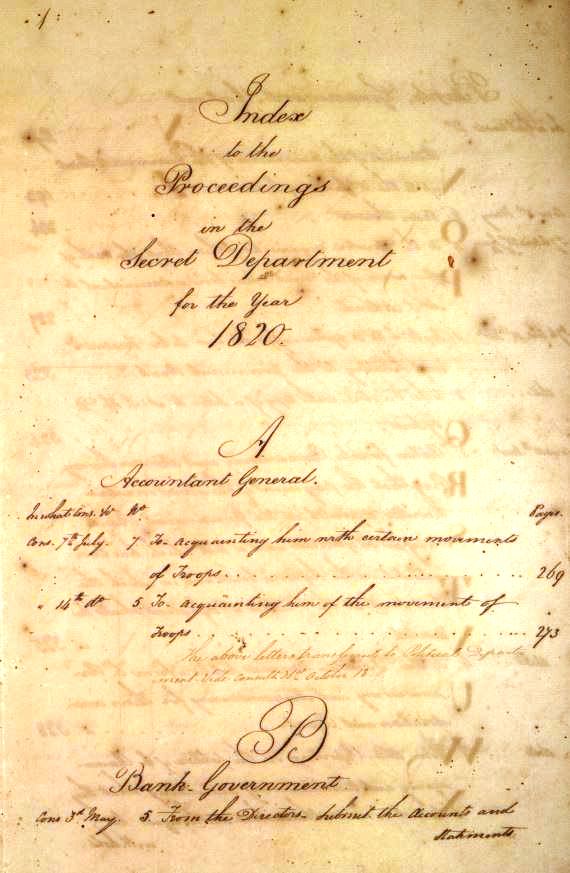 1.
Index
to the
Proceedings
in the
Secret Department
for the Year
1820.
A
Accountant General.
In what Cons. &c No Pages.
Cons. 7th July. 7 To- acquainting him with certain movements
of Troops. 269
" 14th do 5. To- acquainting him of the movement of
Troops. 273
The above letters transferred to Political Depart-
ment Vide Consultn October
B
Bank- Government.
Cons 3d May. 5. From the Directors- submit the Accounts and
Statements